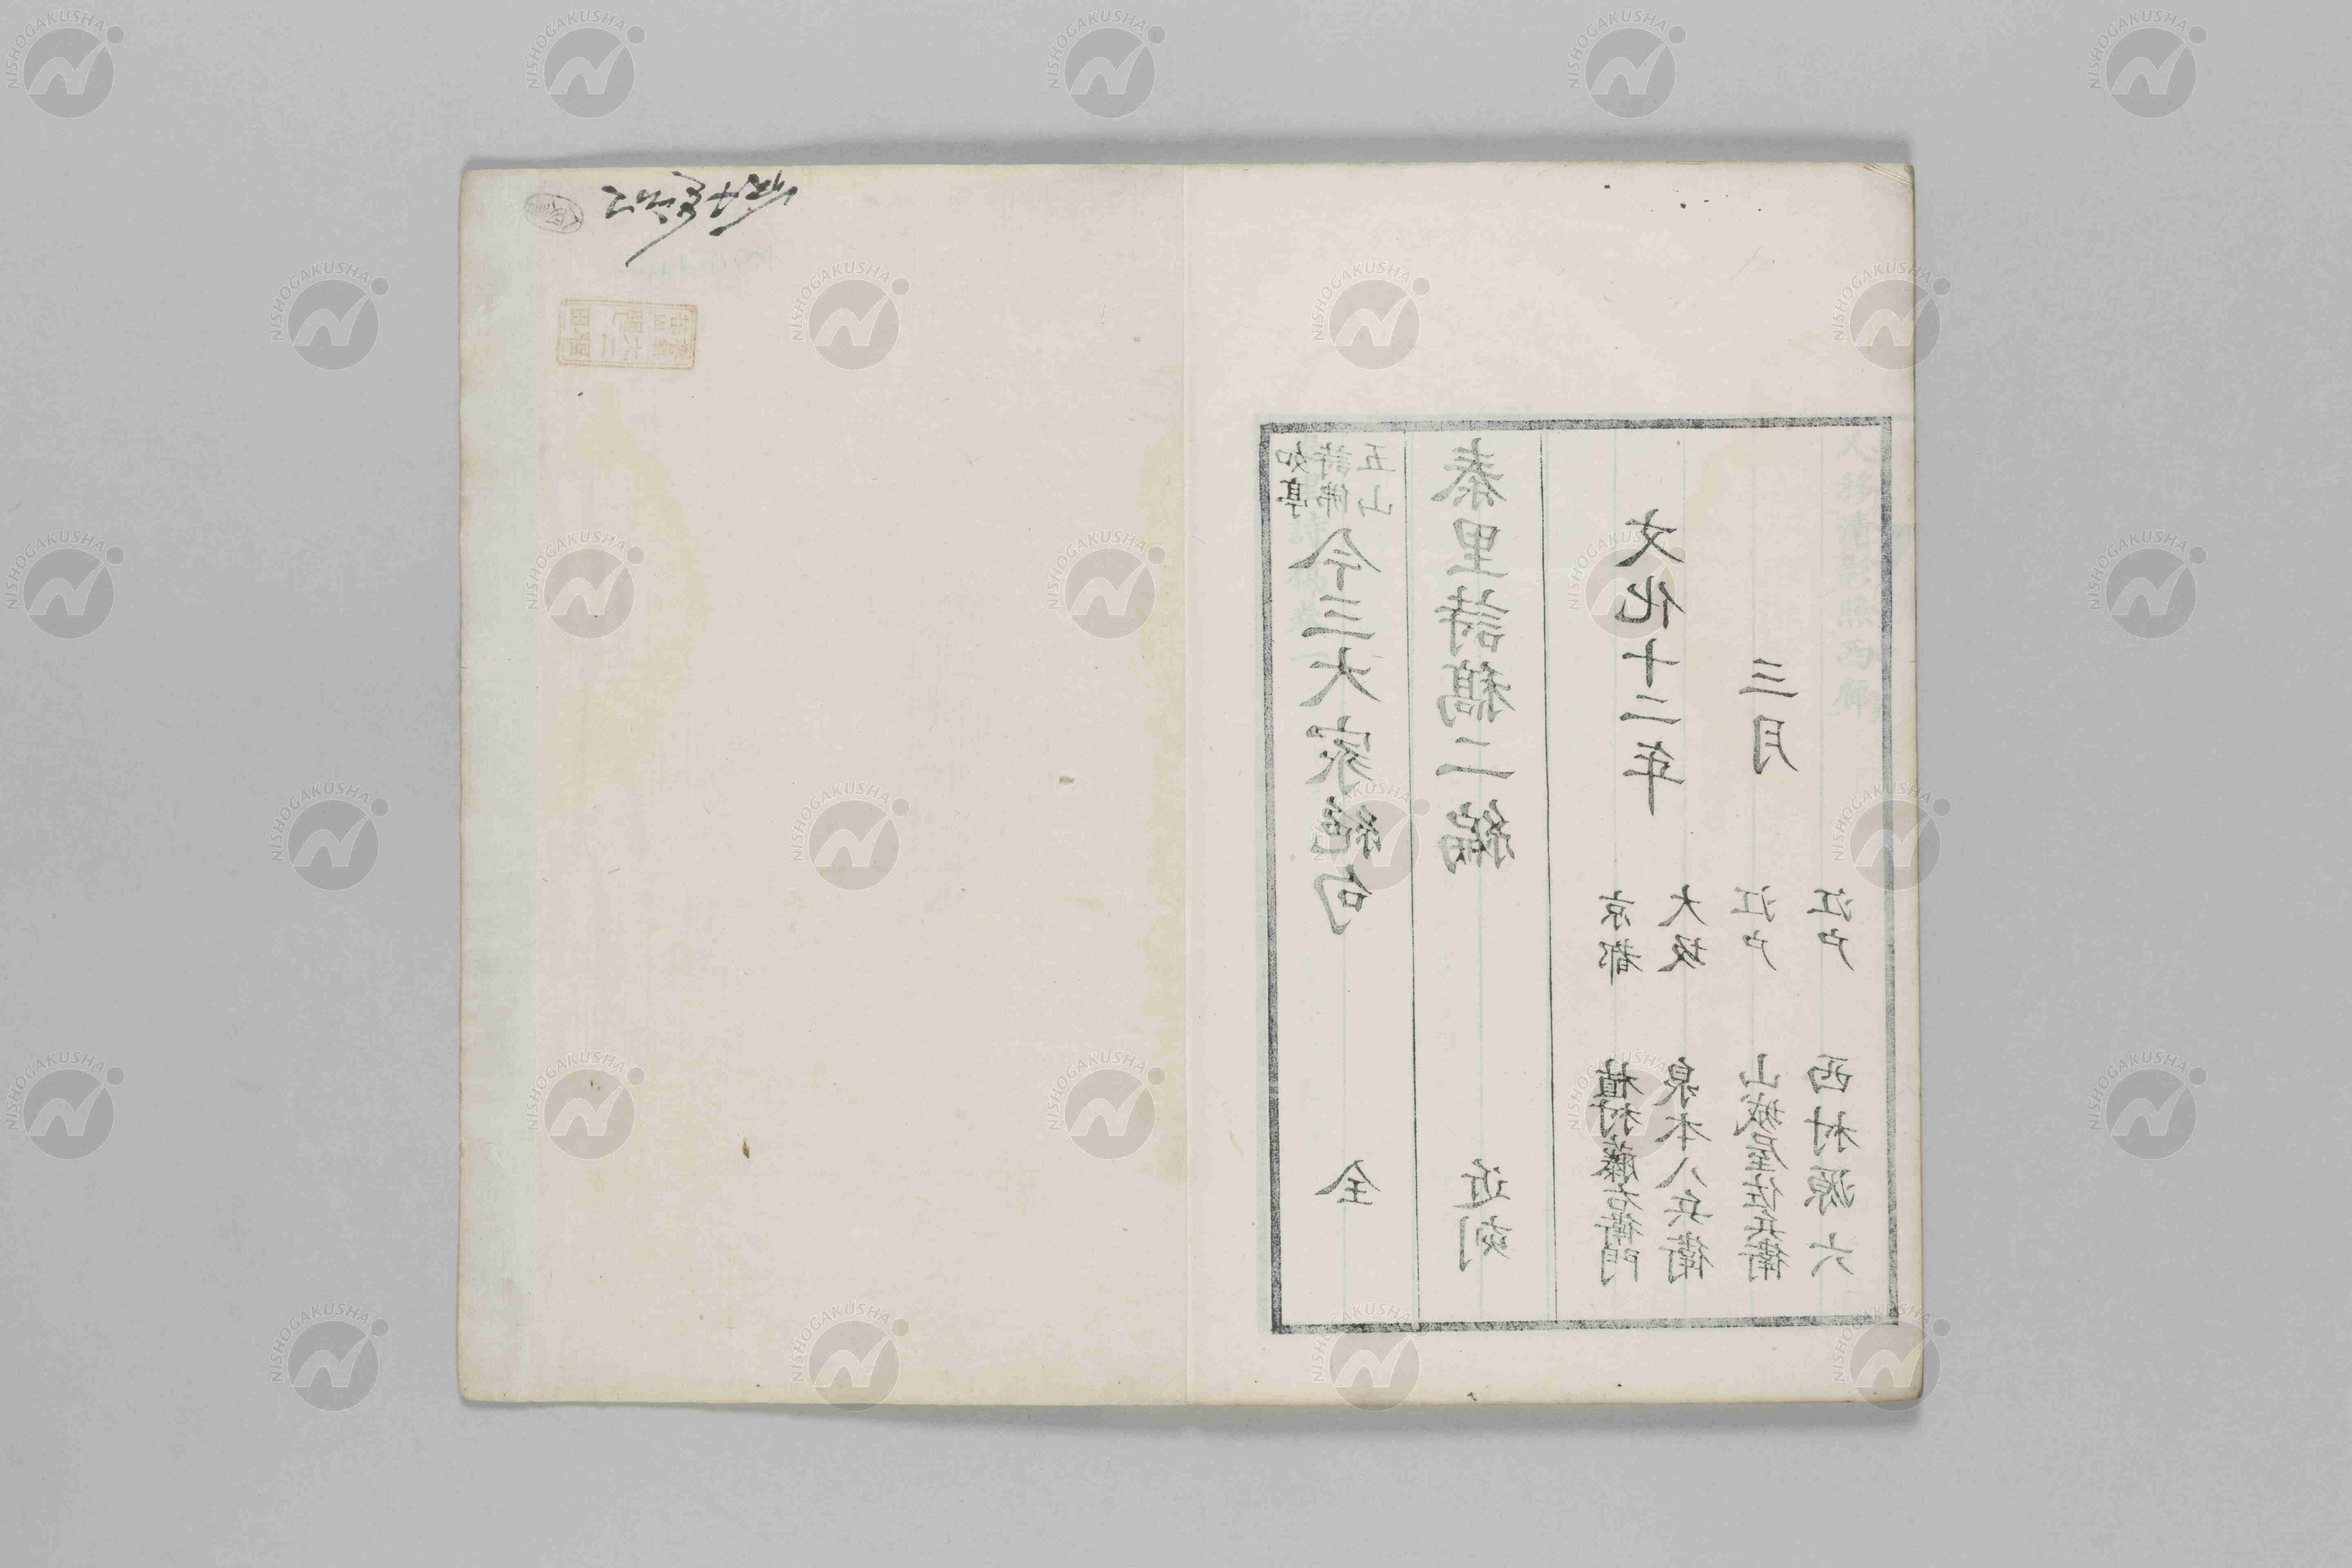 如亭
詩佛
五山
今三大家絶句 全
泰里詩稿二編 近刻
文化十二年
三月
京都 植村藤右衛門
大坂 泉本八兵衛
江戸 山城屋佐兵衛
江戸 西村源六
NISHOGAKUSHA